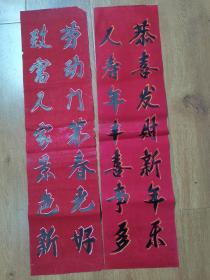 恭喜发财新年乐
人寿年丰喜事多
劳动门第春光好
致富人家景色新